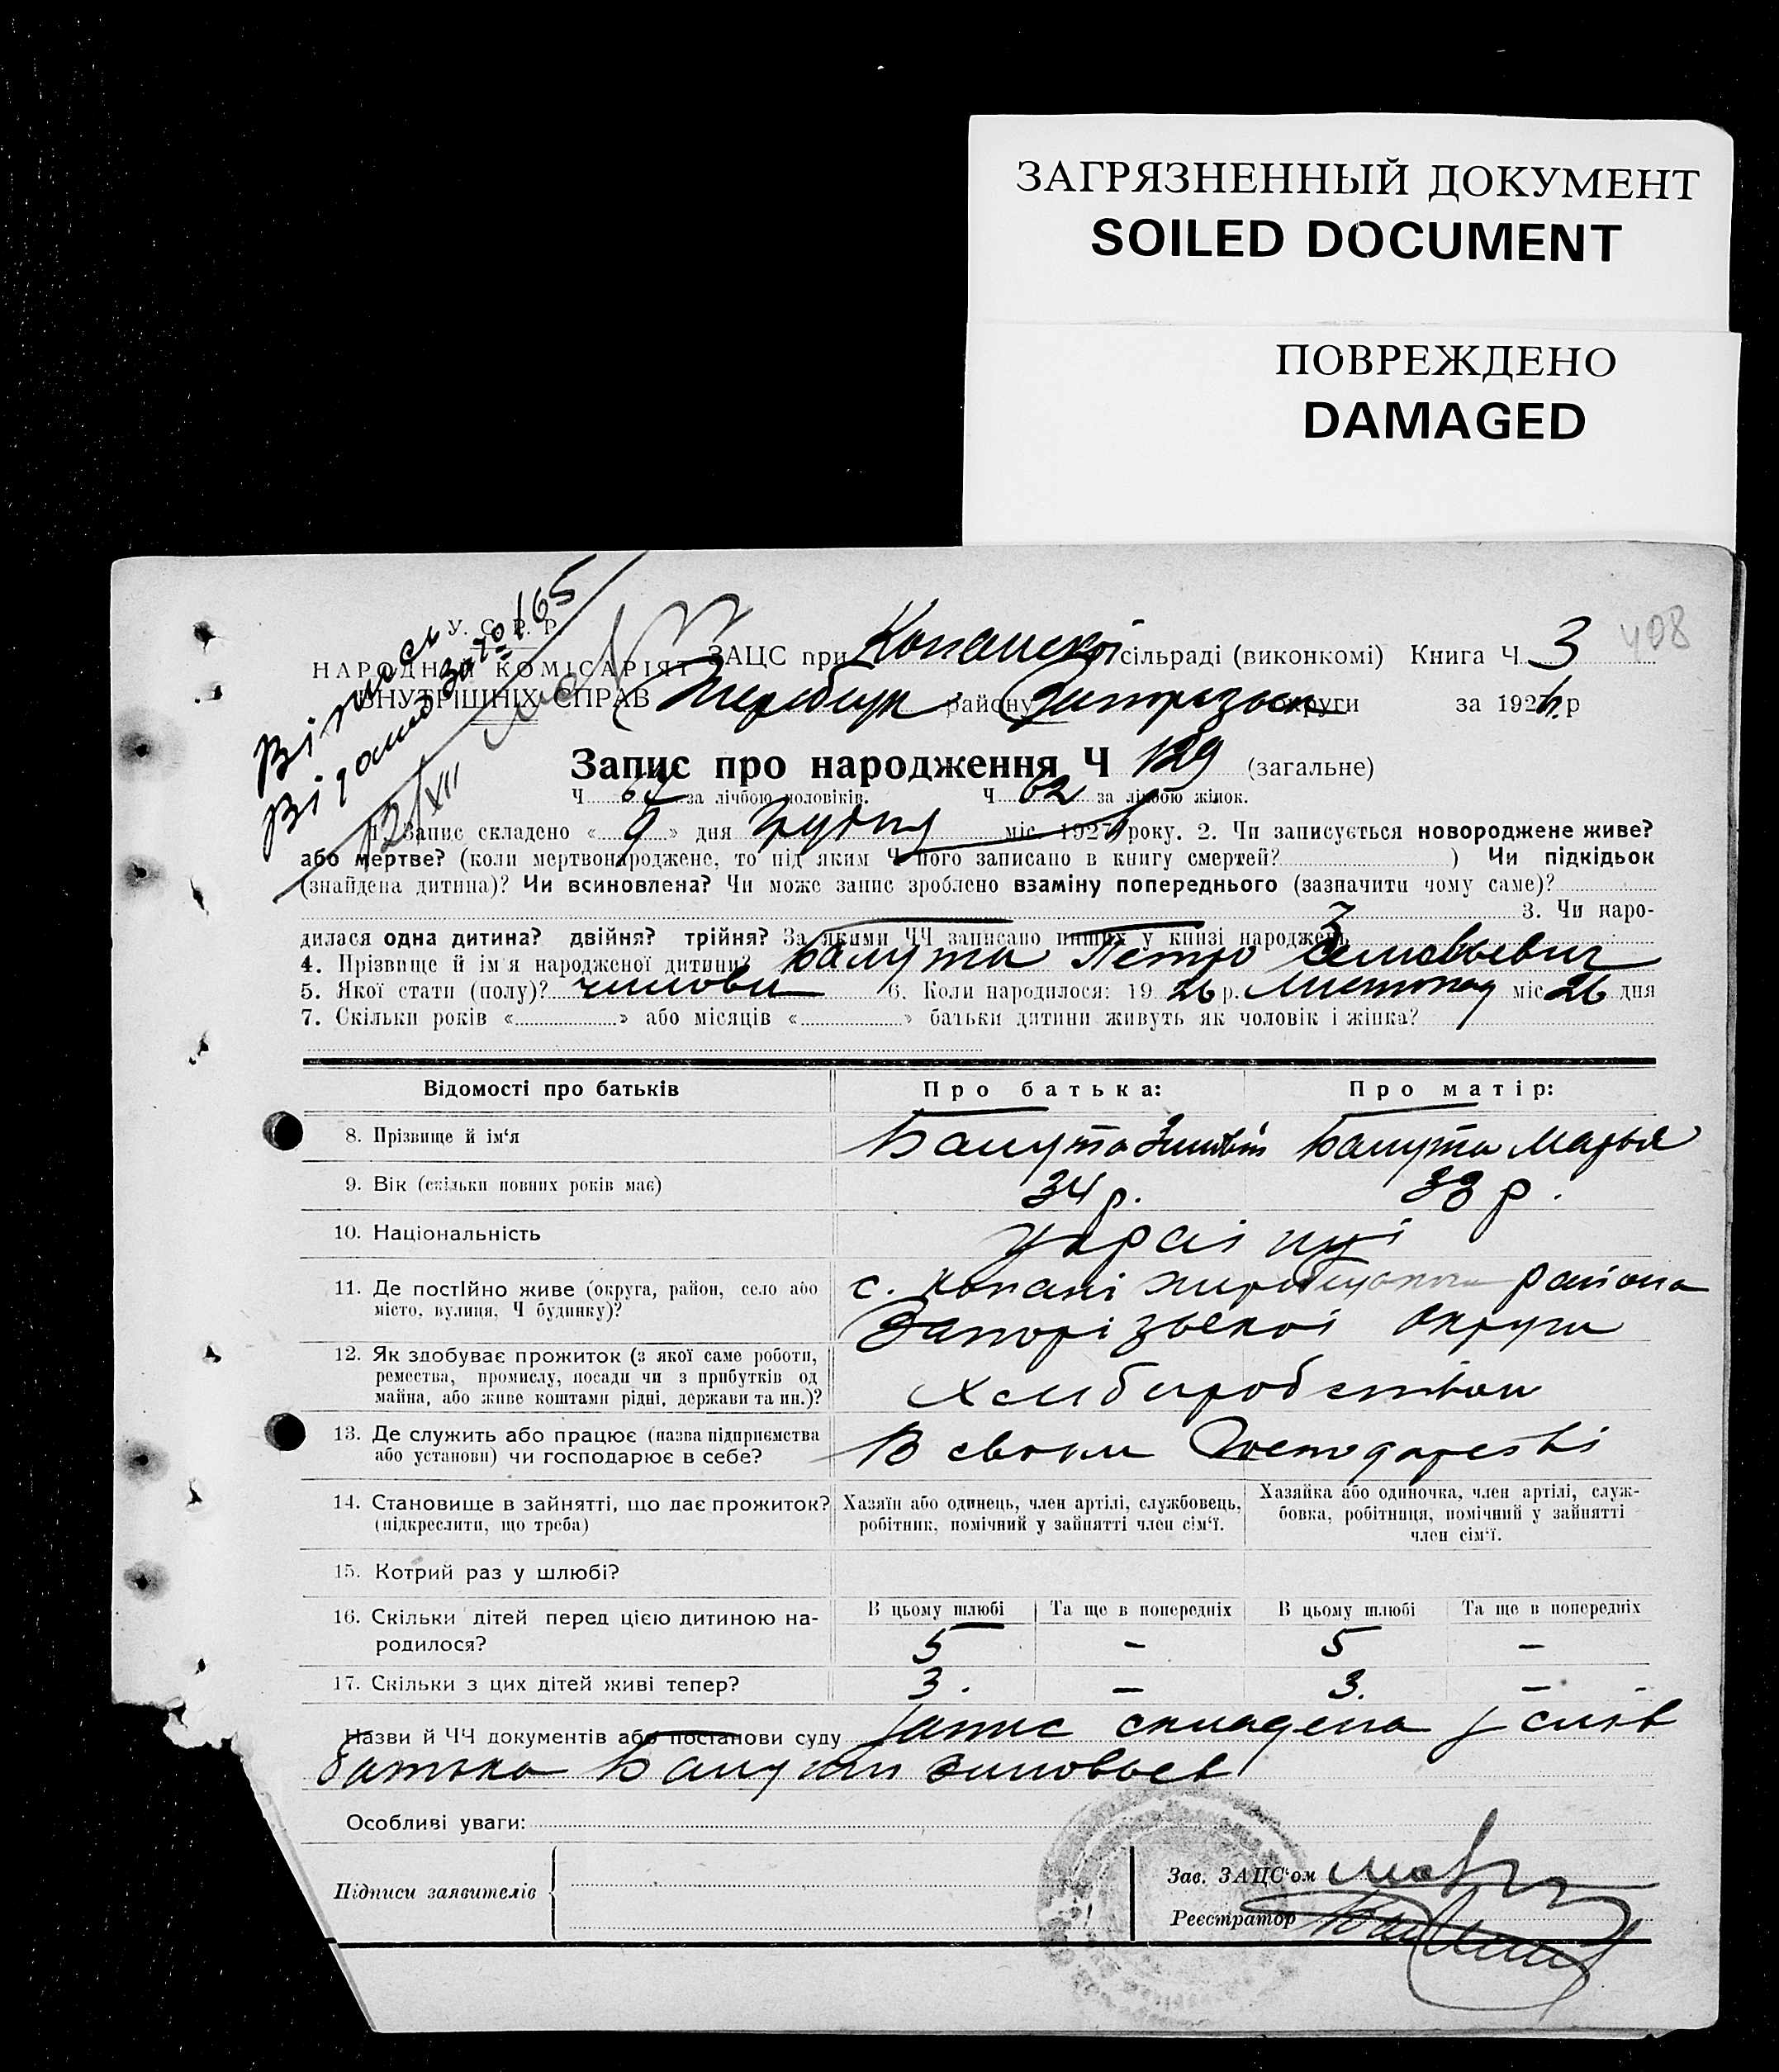 ЗАГРЯЗНЕННЫЙ ДОКУМЕНТ
SOILED DOCUMENT
ПОВРЕЖДЕНО
DAMAGED
408
У. С. Р. Р.
НАРОДНІЙ КОМІСАРІЯТ
ВНУТРІШНІХ СПРАВ
ЗАЦС при Копанскої сільраді (виконкомі) Книга Ч. 3
району округи за 1926 р
Запис про народження Ч 129 (загальне)
Ч. 67 за лічбою чоловіків. Ч. 62 за лічбою жінок.
1. Запис складено « 9 » дня Грудня міс. 1926 року. 2. Чи записується новороджене живе?
або мертве? (коли мертвонароджене, то під яким Ч його записано в книгу смертей? ) Чи підкідьок
(знайдена дитина)? Чи всиновлена? Чи може запис зроблено взаміну попереднього (зазначити чому саме)?
3. Чи наро-
дилася одна дитина? двійня? трійня? За якими ЧЧ записано инших у книзі народжень
4. Прізвище й ім'я народженої дитини? Балута Петро
5. Якої стати (полу)? чолові 6. Коли народилося: 1926 р. Листопад міс 26 дня
7. Скільки років « » або місяців « » батьки дитини живуть як чоловік і жінка?
Відомості про батьків Про батька: Про матір:
8. Прізвище й ім'я Балута Балута Марья
9. Вік (скільки повних років має) 34 р. 33 р.
10. Національність Українці
11. Де постійно живе (округа, район, село або місто, вулиця, Ч будинку)? с. Копані района
Запорізької округи
12. Як здобуває прожиток (з якої саме роботи,
ремества, промислу, посади чи з прибутків од
майна, або живе коштами рідні, держави та ин.)? Хлиборобством
13. Де служить або працює (назва підприємства
або установи) чи господарює в себе? В своім господарстві
14. Становище в зайнятті, що дає прожиток?
(підкреслити, що треба)
Хазяїн або одинець, член артілі, службовець,
робітник, помічний у зайнятті член сім'ї.
Хазяйка або одиночка, член артілі, служ-
бовка, робітниця, помічний у зайнятті
член сім'ї.
15. Котрий раз у шлюбі?
16. Скільки дітей перед цією дитиною на-
родилося?
В цьому шлюбі Та ще в попередніх В цьому шлюбі Та ще в попередніх
5 – 5 –
17. Скільки з цих дітей живі тепер? 3. – 3. –
Назви й ЧЧ документів або постанови суду Запис складена з слів
батька Балути
Особливі уваги:
Підписи заявителів
Зав. ЗАЦС'ом
Реєстратор